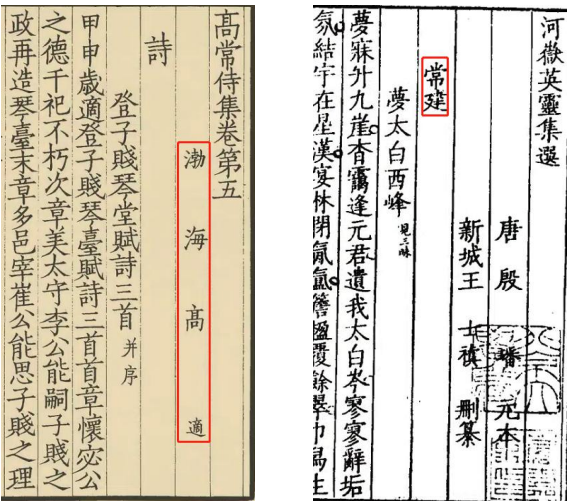 高常侍集卷第五
渤海高適
詩
登子賤琴堂賦詩三首并序
甲申歲適登子賤琴臺賦詩三首首章懷宓公
之德千祀不朽次章美太守李公能嗣子賤之
政再造琴臺末章多邑宰崔公能思子賤之理
河嶽英靈集選
唐殷璠元本
新城王士禛刪纂
常建
夢太白西峰見三昧
夢寐升九崖杳靄逢元君遺我太白岑寥寥辭垢
氛結宇在星漢宴林閉氤氳簷楹覆餘翠巾舄生